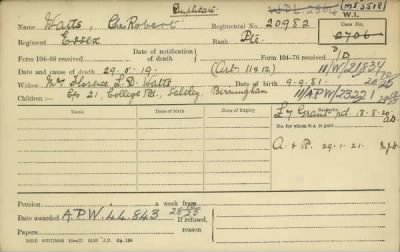 Duplicate
(MS 5518)
W.I.
Name Watts, Chs Robert Regimental No. 20982
Case No.
2706
Regiment Essex Rank Pte
Form 104-88 received
Date of notification of death
Form 104-76 received
Date and cause of death 29.8.19.
(Art: 1162) 11/W/21834
Widow Mrs Florence L. D. Watts Date of birth 9.9.81.
Children:— C/o 21, College Rd., Saltley. Birmingham 11/APW/2322
Name Date of Birth Date of Expiry
Grant
No. for whom S.A. is paid
A + R. 29.1.21.
Pension a week from
Date awarded A.P.W. 44843 If refused, reason
Papers